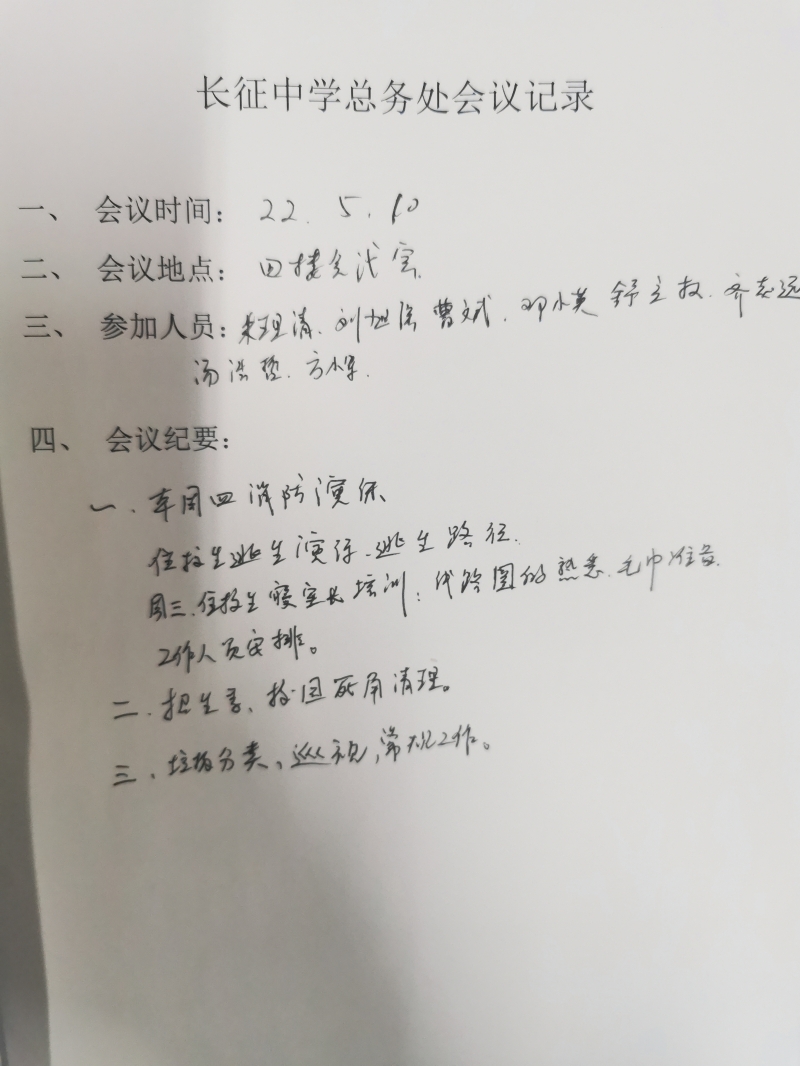 长征中学总务处会议记录
一、 会议时间: 22.5.10
二、 会议地点: 四楼会议室
三、 参加人员: 朱理清、刘旭 曹斌、邓小英 舒主权、齐志远
汤浩 、方小军、
四、 会议纪要:
一、本周四消防演练
住校生逃生演练、逃生路径、
周三、住校生寝室长培训: 线路图的熟悉、毛巾准备、
工作人员安排。
二、 、校园死角清理。
三、垃圾分类、巡视,常规工作。